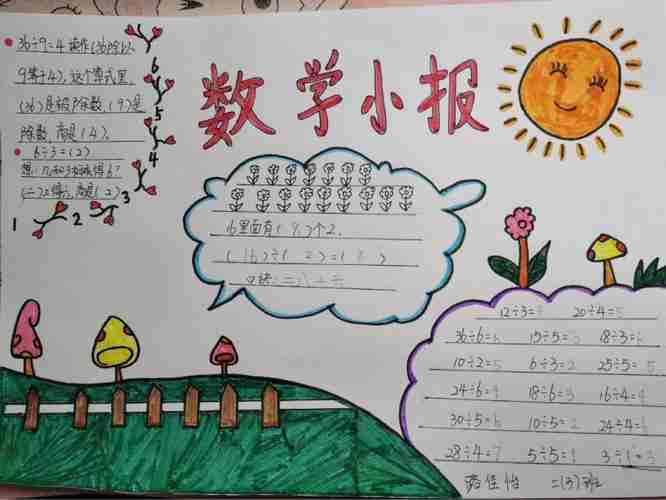 数学小报
36÷9=4 读作(36除以
9等于4),这个算式里,
(36)是被除数,(9)是
除数,商是(4)。
6÷3=(2)
想:几和3相乘得6?
(二)三得六,商是(2)
1
2
3
4
5
6
16里面有(8)个2。
(16)÷(2)=(8)
口诀:二八十六
12÷3=4 20÷4=5
36÷6=6 15÷5=3 18÷3=6
10÷2=5 6÷3=2 25÷5=5
24÷6=4 18÷6=3 16÷4=4
30÷5=6 10÷5=2 24÷4=6
28÷4=7 5÷5=1 3÷1=3
佳怡 二(3)班